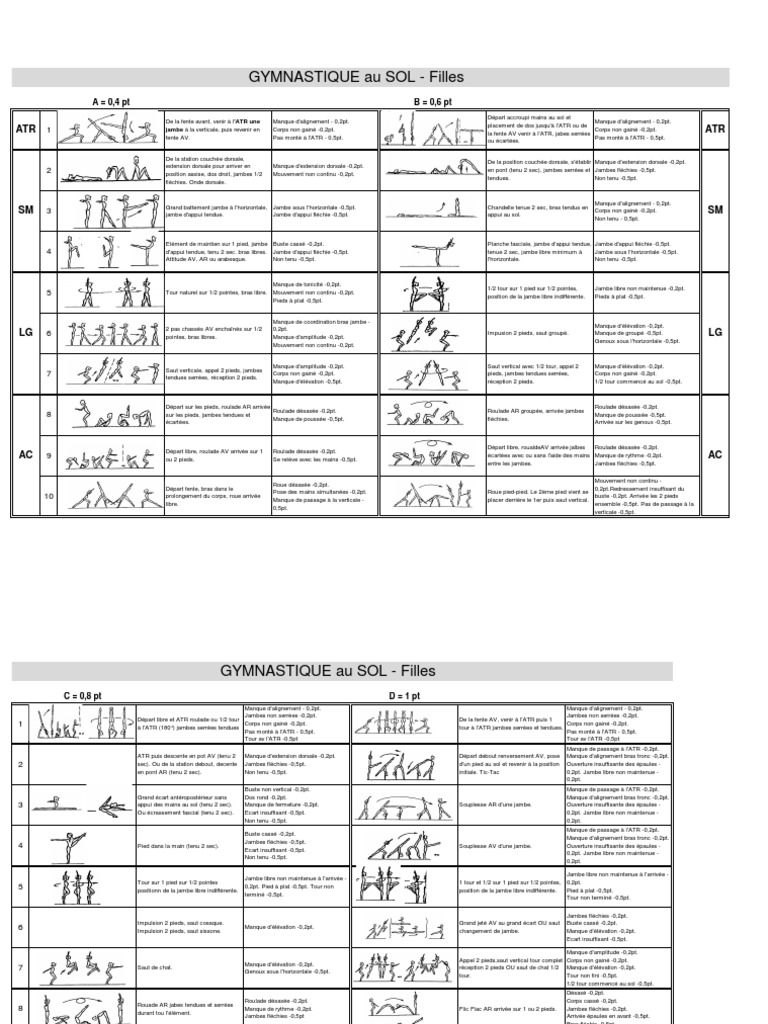 GYMNASTIQUE au SOL - Filles
A = 0,4 pt
B = 0,6 pt
ATR
1
De la fente avant, venir à l'ATR une
jambe à la verticale, puis revenir en
fente AV.
Manque d'alignement - 0,2pt.
Corps non gainé -0,2pt.
Pas monté à l'ATR - 0,5pt.
Départ accroupi mains au sol et
placement de dos jusqu'à l'ATR ou de
la fente AV venir à l'ATR, jabes serrées
ou écartées.
Manque d'alignement - 0,2pt.
Corps non gainé -0,2pt.
Pas monté à l'ATR - 0,5pt.
ATR
SM
2
De la station couchée dorsale,
extension dorsale pour arriver en
position assise, dos droit, jambes 1/2
fléchies. Onde dorsale.
Manque d'extension dorsale -0,2pt.
Mouvement non continu -0,2pt.
De la position couchée dorsale, s'établir
en pont (tenu 2 sec). jambes serrées et
tendues.
Manque d'extension dorsale -0,2pt.
Jambes fléchies -0,5pt.
Non tenu -0,5pt.
SM
3
Grand battement jambe à l'horizontale,
jambe d'appui tendue.
Jambe sous l'horizontale -0,5pt.
Jambe d'appui fléchie -0,5pt.
Chandelle tenue 2 sec, bras tendus en
appui au sol.
Manque d'alignement - 0,2pt.
Corps non gainé -0,2pt.
Non tenu - 0,5pt.
4
Elément de maintien sur 1 pied, jambe
d'appui tendue, tenu 2 sec. bras libres.
Attitude AV, AR ou arabesque.
Buste cassé -0,2pt.
Jambe d'appui fléchie -0,5pt.
Non tenu -0,5pt.
Planche fasciale, jambe d'appui tendue,
tenue 2 sec, jambe libre minimum à
l'horizontale.
Jambe d'appui fléchie -0,5pt.
Jambe sous l'horizontale -0,5pt.
Non tenu -0,5pt.
LG
5
Tour naturel sur 1/2 pointes, bras libre.
Manque de tonicité -0,2pt.
Mouvement non continu -0,2pt.
Pieds à plat -0,5pt.
1/2 tour sur 1 pied sur 1/2 pointes,
position de la jambe libre indifférente.
Jambe libre non maintenue -0,2pt.
Pieds à plat -0,5pt.
LG
6
2 pas chassés AV enchaînés sur 1/2
pointes, bras libres.
Manque de coordination bras jambe -
0,2pt.
Manque d'amplitude -0,2pt.
Mouvement non continu -0,2pt.
Impusion 2 pieds, saut groupé.
Manque d'élévation -0,2pt.
Manque de groupé -0,5pt.
Genoux sous l'horizontale -0,5pt.
7
Saut verticale, appel 2 pieds, jambes
tendues serrées, réception 2 pieds.
Manque d'amplitude -0,2pt.
Corps non gainé -0,2pt.
Manque d'élévation -0,5pt.
Saut vertical avec 1/2 tour, appel 2
pieds, jambes tendues serrées,
réception 2 pieds.
Manque d'élévation -0,2pt.
Corps non gainé -0,2pt.
1/2 tour commencé au sol -0,5pt.
AC
8
Départ sur les pieds, roulade AR arrivée
sur les pieds, jambes tendues et
écartées.
Roulade désaxée -0,2pt.
Manque de poussée -0,5pt.
Roulade AR groupée, arrivée jambes
fléchies.
Roulade désaxée -0,2pt.
Manque de poussée -0,5pt.
Arrivée sur les genoux -0,5pt.
AC
9
Départ libre, roulade AV arrivée sur 1
ou 2 pieds.
Roulade désaxée -0,2pt.
Se relève avec les mains -0,5pt.
Départ libre, roualdeAV arrivée jalbes
écartées avec ou sans l'aide des mains
entre les jambes.
Roulade désaxée -0,2pt.
Manque de rythme -0,2pt.
Jambes fléchies -0,5pt.
10
Départ fente, bras dans le
prolongement du corps, roue arrivée
libre.
Roue désaxée -0,2pt.
Pose des mains simultanées -0,2pt.
Manque de passage à la verticale -
0,5pt.
Roue pied-pied. Le 2ème pied vient se
placer derrière le 1er puis saut vertical.
Mouvement non continu -
0,2pt.Redressement insuffisant du
buste -0,2pt. Arrivée les 2 pieds
ensemble -0,5pt. Pas de passage à la
verticale -0,5pt.
GYMNASTIQUE au SOL - Filles
C = 0,8 pt
D = 1 pt
1
Départ libre et ATR roulade ou 1/2 tour
à l'ATR (180°) jambes serrées tendues
Manque d'alignement - 0,2pt.
Jambes non serrées -0,2pt.
Corps non gainé -0,2pt.
Pas monté à l'ATR - 0,5pt.
Tour av l'ATR -0,5pt
De la fente AV, venir à l'ATR puis 1
tour à l'ATR jambes serrées et tendues.
Manque d'alignement - 0,2pt.
Jambes non serrées -0,2pt.
Corps non gainé -0,2pt.
Pas monté à l'ATR - 0,5pt.
Tour av l'ATR -0,5pt
2
ATR puis descente en pot AV (tenu 2
sec). Ou de la station debout, decente
en pont AR (tenu 2 sec).
Manque d'extension dorsale -0,2pt.
Jambes fléchies -0,5pt.
Non tenu -0,5pt.
Départ debout renversement AV, pose
d'un pied au sol et revenir à la position
initiale. Tic-Tac
Manque de passage à l'ATR -0,2pt.
Manque d'alignement bras tronc -0,2pt.
Ouverture insuffisante des épaules -
0,2pt. Jambe libre non maintenue -
0,2pt.
3
Grand écart antéropostérieur sans
appui des mains au sol (tenu 2 sec).
Ou écrassement fascial (tenu 2 sec).
Buste non vertical -0,2pt.
Dos rond -0,2pt.
Manque de fermeture -0,2pt.
Ecart insuffisant -0,5pt.
Non tenu -0,5pt.
Souplesse AR d'une jambe.
Manque de passage à l'ATR -0,2pt.
Manque d'alignement bras tronc -0,2pt.
Ouverture insuffisante des épaules -
0,2pt. Jambe libre non maintenue -
0,2pt.
4
Pied dans la main (tenu 2 sec).
Buste cassé -0,2pt.
Jambes fléchies -0,5pt.
Ecart insuffisant -0,5pt.
Non tenu -0,5pt.
Souplesse AV d'une jambe.
Manque de passage à l'ATR -0,2pt.
Manque d'alignement bras tronc -0,2pt.
Ouverture insuffisante des épaules -
0,2pt. Jambe libre non maintenue -
0,2pt.
5
Tour sur 1 pied sur 1/2 pointes
positionn de la jambe libre indifférente.
Jambe libre non maintenue à l'arrivée -
0,2pt. Pied à plat -0,5pt. Tour non
terminé -0,5pt.
1 tour et 1/2 sur 1 pied sur 1/2 pointes,
position de la jambe libre indifférente.
Jambe libre non maintenue à l'arrivée -
0,2pt.
Pied à plat -0,5pt.
Tour non terminé -0,5pt.
6
Impulsion 2 pieds, saut cosaque.
Impulsion 2 pieds, saut sissone.
Manque d'élévation -0,2pt.
Grand jeté AV au grand écart OU saut
changement de jambe.
Jambes fléchies -0,2pt.
Buste cassé -0,2pt.
Manque d'élévation -0,2pt.
Ecart insuffisant -0,5pt.
7
Saut de chat.
Manque d'élévation -0,2pt.
Genoux sous l'horizontale -0,5pt.
Appel 2 pieds,saut vertical tour complet
réception 2 pieds OU saut de chat 1/2
tour.
Manque d'amplitude -0,2pt.
Corps non gainé -0,2pt.
Manque d'élévation -0,5pt.
Tour non fini -0,5pt.
1/2 tour commencé au sol -0,5pt.
8
Rouade AR jabes tendues et serrées
durant tou l'élément.
Roulade désaxée -0,2pt.
Manque de rythme -0,2pt.
Jambes fléchies -0,5pt
Flic Flac AR arrivée sur 1 ou 2 pieds.
Désaxé -0,2pt.
Corps cassé -0,2pt.
Jambes fléchies -0,2pt.
Arrivée épaules en avant -0,5pt.